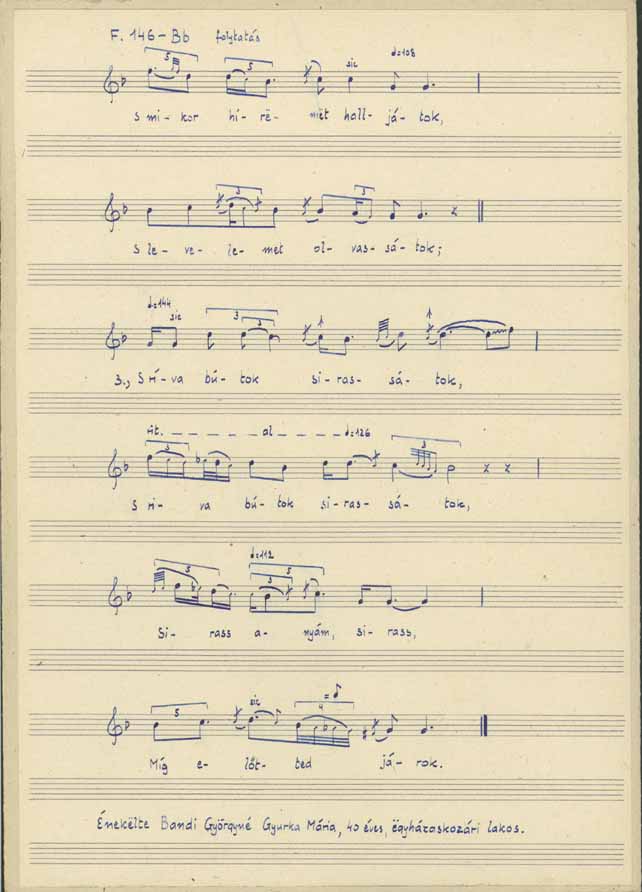 F. 146-Bb folytatás
5 5 sic ♩=108
S mi- kor hí- rë- mët hall- já- tok,
3 3
S le- ve- le- met ol- vas- sá- tok;
♩=144 sic
3 3
3., S rí- va bú- tok si- ras- sá- tok,
rit. _ _ _ _ _ _ al _ _ _ _ _ ♩=126
3 3
S rí- va bú- tok si- ras- sá- tok,
♩=112
5 5 3
Si- rass a- nyám, si- rass,
5 sic = ♪ 4
Míg e- lőt- ted já- rok.
Énekëlte Bandi Györgyné Gyurka Mária, 40 éves, ëgyházaskozári lakos.